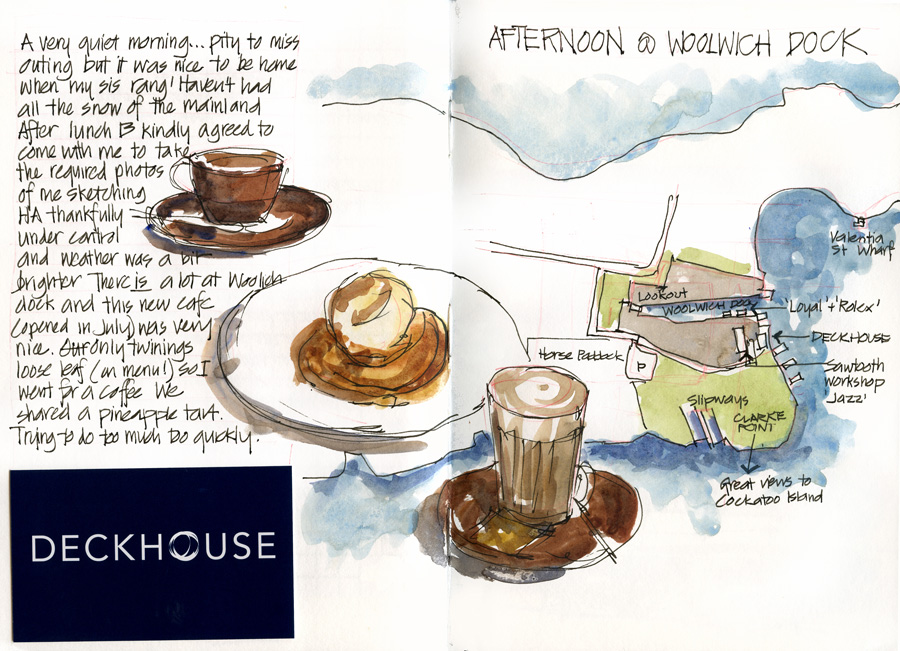 A very quiet morning... pity to miss
outing but it was nice to be home
when my sis rang! Haven't had
all the snow of the mainland
After lunch B kindly agreed to
come with me to take
the required photos
of me sketching
HA thankfully
under control
and weather was a bit
brighter There is a lot at Woolich
dock and this new cafe
(opened in July) was very
nice. Only twinings
loose leaf (on menu!) so I
went for a coffee We
shared a pineapple tart.
Trying to do too much too quickly.
DECKHOUSE
AFTERNOON @ WOOLWICH DOCK
Valentia
St Wharf
Lookout
WOOLWICH DOCK
'Loyal'+'Rolex'
DECKHOUSE
Horse Paddock
P
Sawtooth
Workshop
Jazz'
Slipways
CLARKE
POINT
Great views to
Cockatoo Island